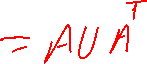 = AUA^T